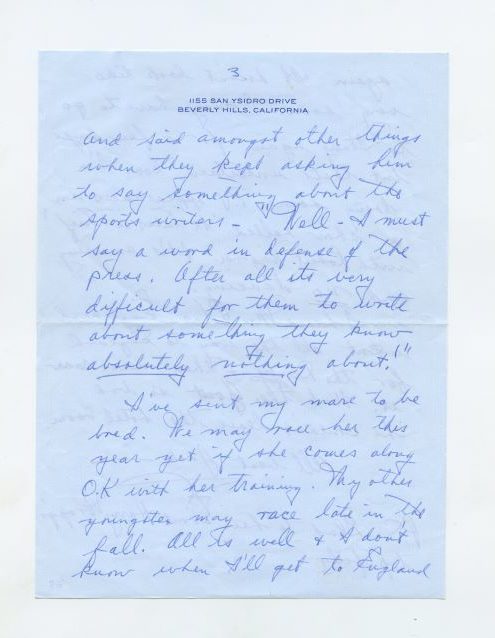 3
1155 SAN YSIDRO DRIVE
BEVERLY HILLS, CALIFORNIA
and said amongst other things
when they kept asking him
to say something about the
sports writers - "Well - I must
say a word in defense of the
press. After all its very
difficult for them to write
about something they know
absolutely nothing about!"
I've sent my mare to be
bred. We may race her this
year yet if she comes along
O.K with her training. My other
youngster may race late in the
fall. All is well & I don't
know when I'll get to England